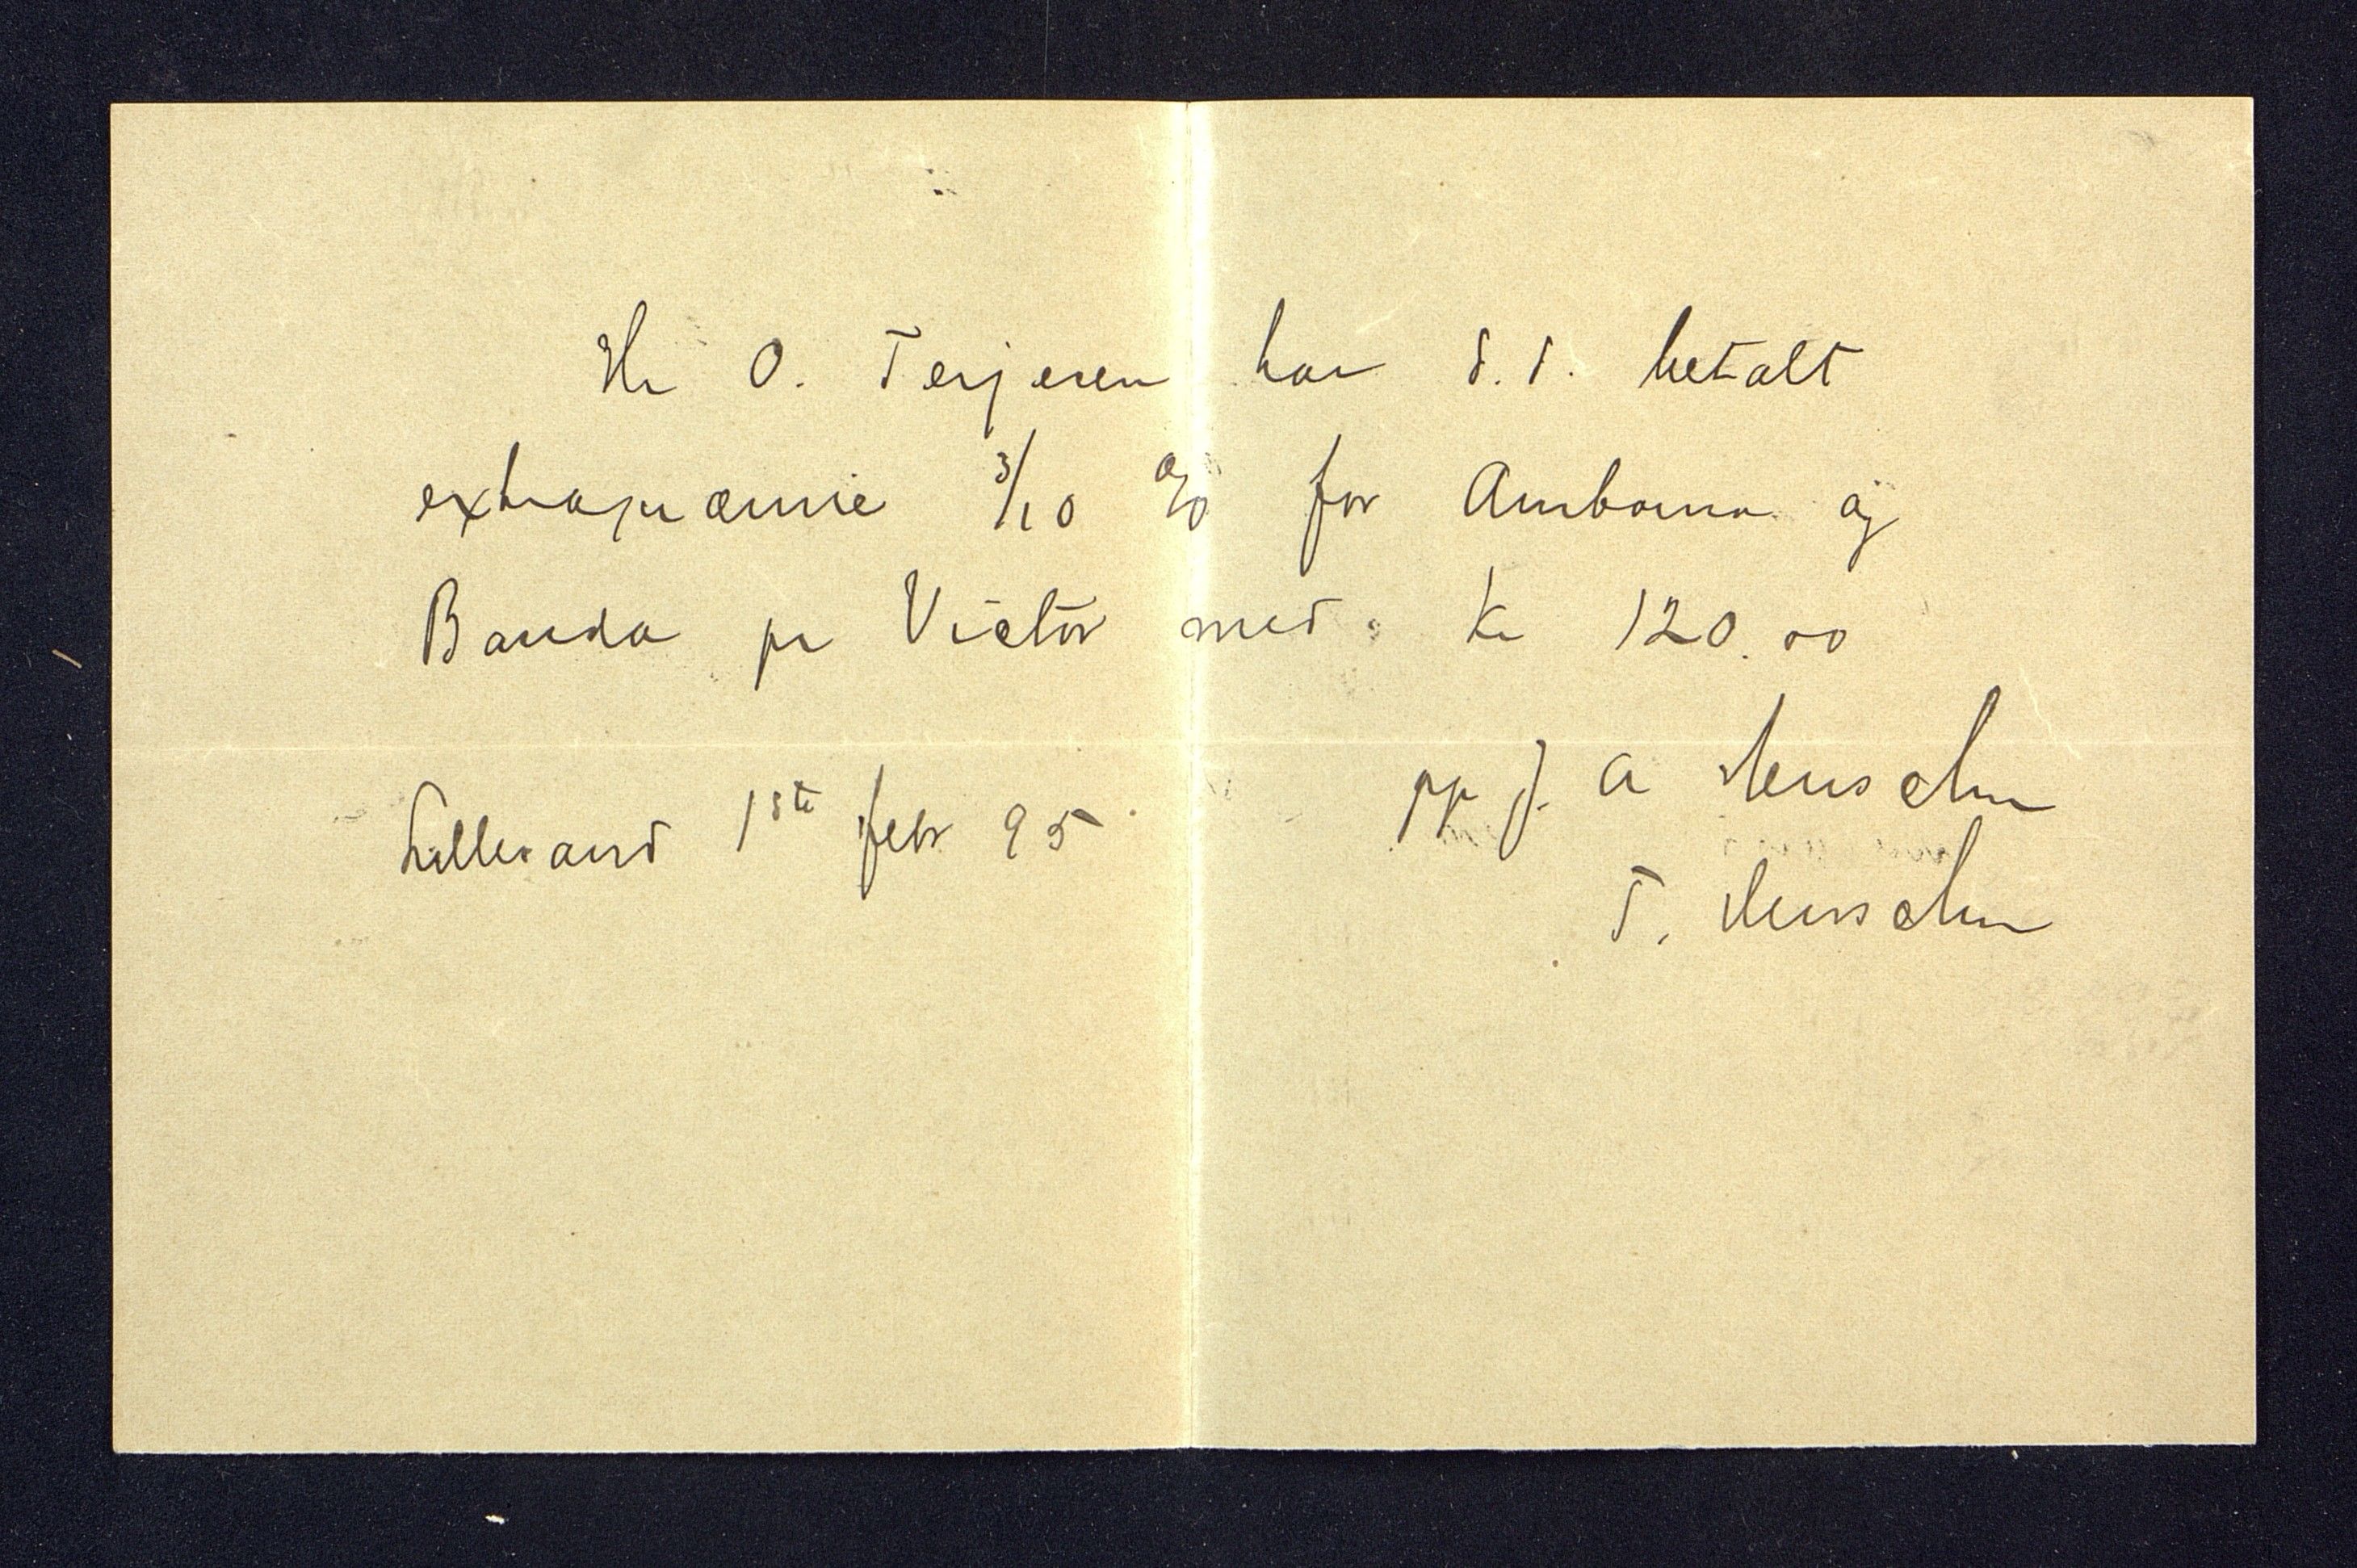 Hr O. Terjesen har d.d. betalt
extrapræmie 3/10 % for Amboina og
Banda pr Victor med Kr 120.00
pp J. A Henschien
Lillesand 1ste febr 95
T. Henschien